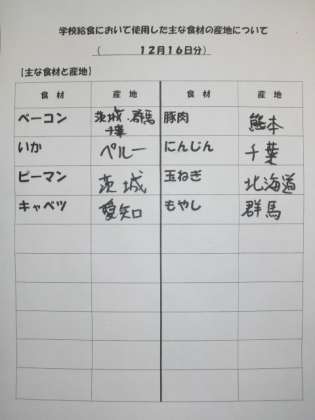 学校給食において使用した主な食材の産地について
(　　　１２月１６日分)
【主な食材と産地】
食 材　産 地　食 材　産 地
ベーコン　茨城・群馬　豚肉　熊本
千葉
いか　ペルー　にんじん　千葉
ピーマン　茨城　玉ねぎ　北海道
キャベツ　愛知　もやし　群馬